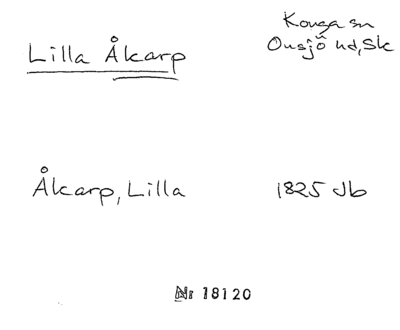 Lilla Åkarp
Konga sn
Onsjö hd, Sk
Åkarp, Lilla
1825 Jb
Nr 18120